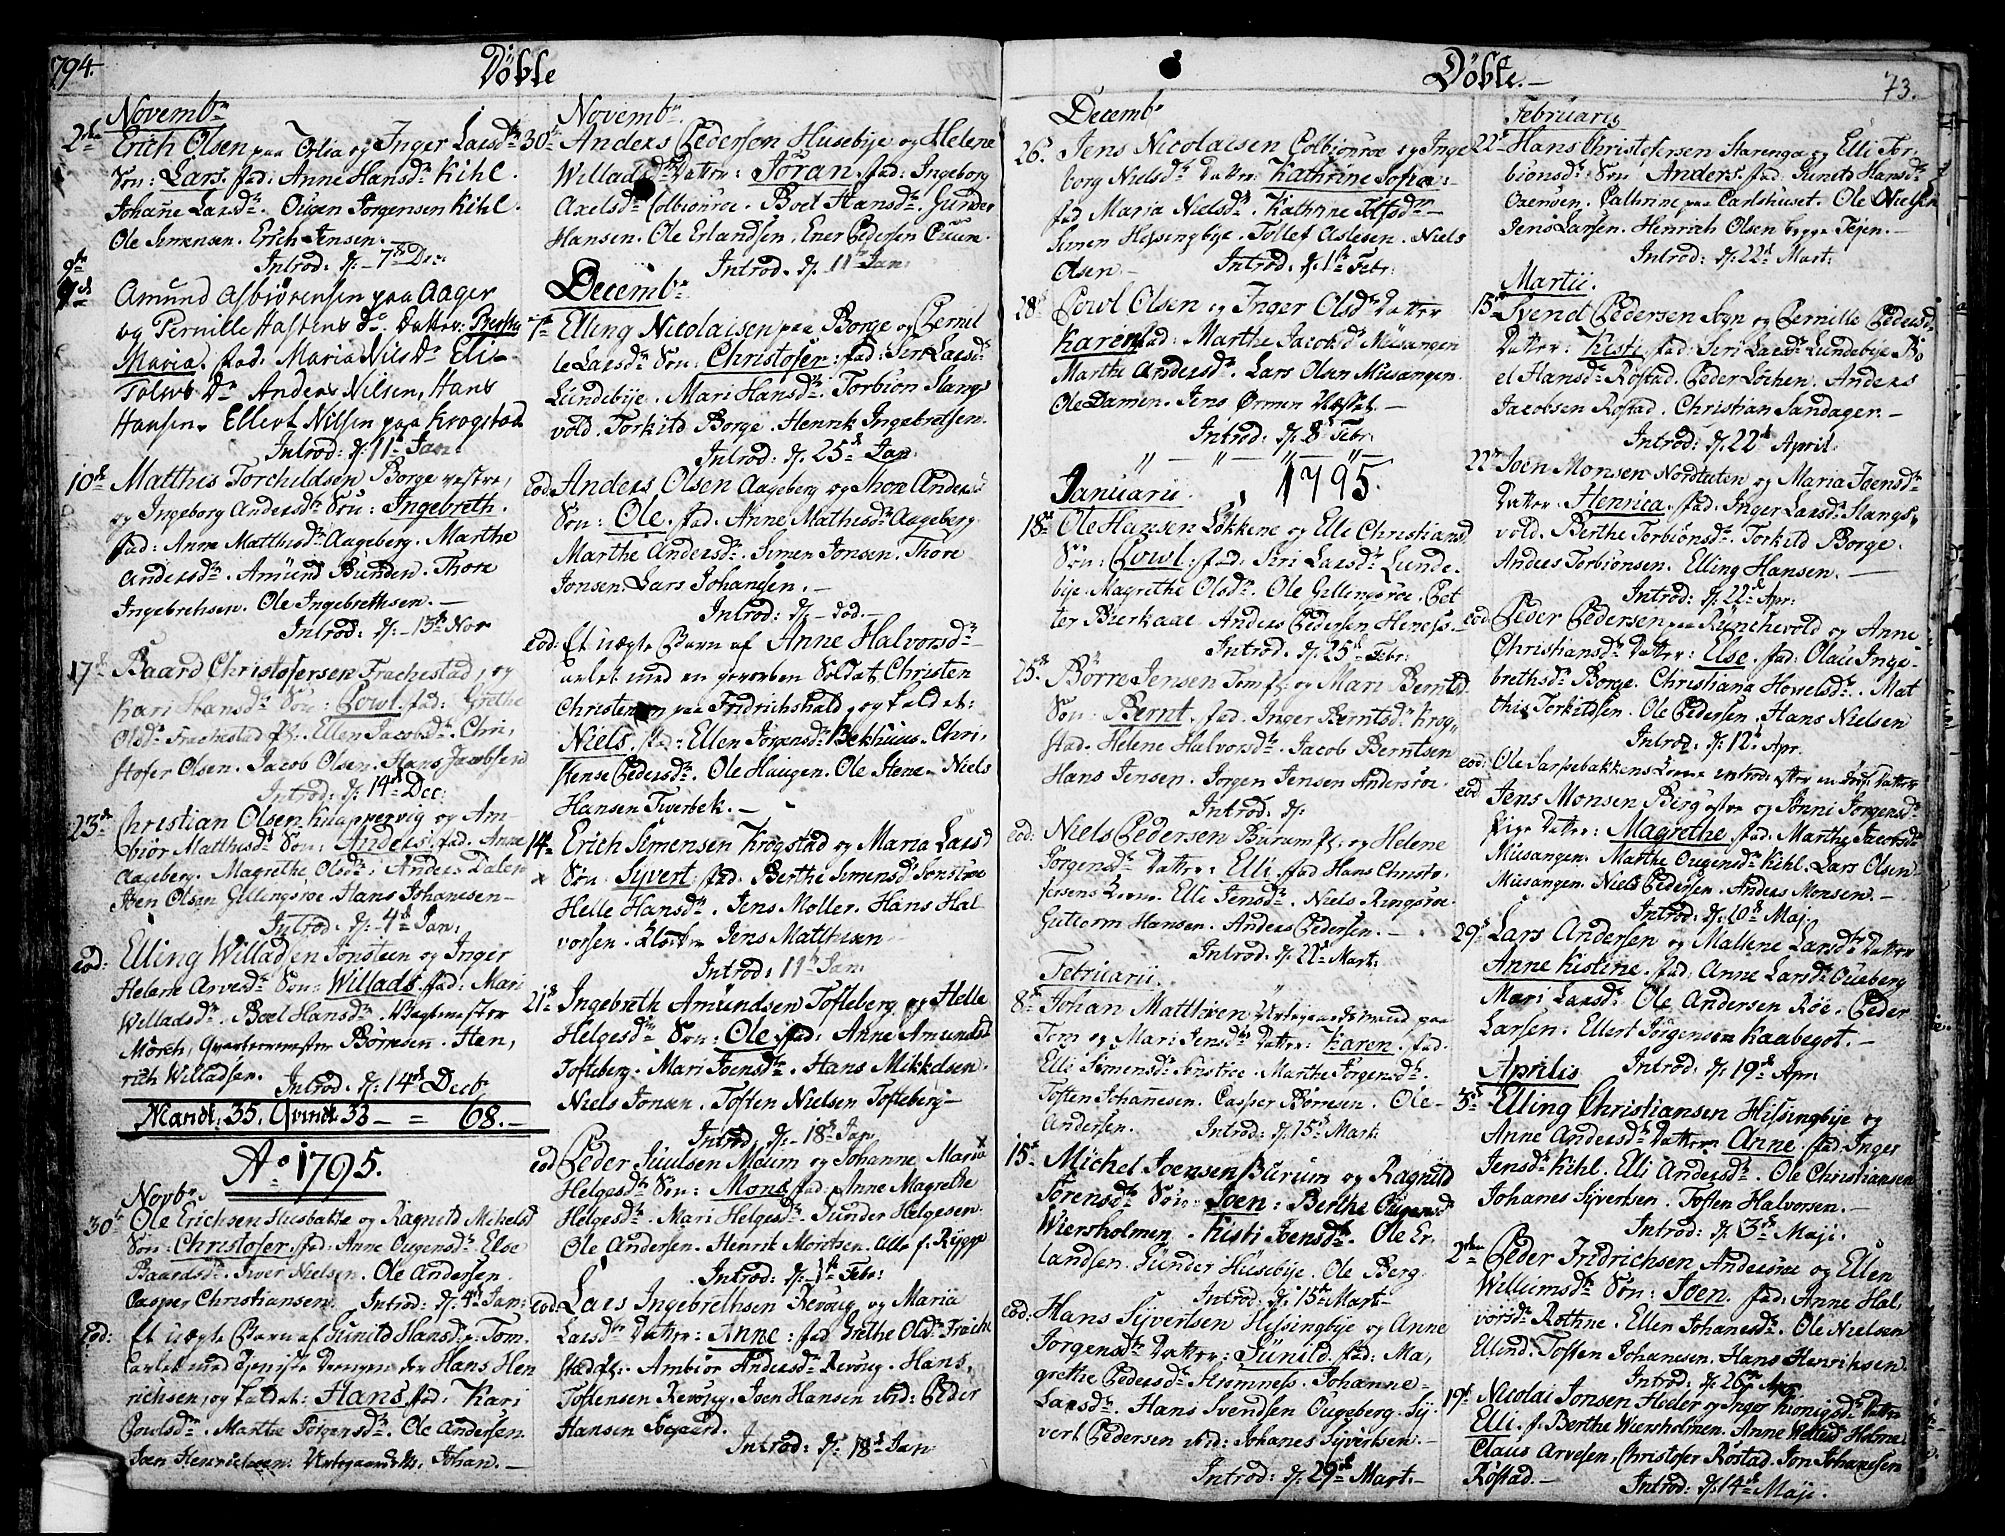 1794.
Døbte
Novembr
2de Erich Olsen paa Ortia og Inger Larsdr
Søn: Lars. fad: Anne Hansdr Kihl.
Johañe Larsdr. Ougen Jørgensen Kihl.
Ole Simensen. Erich Jensen.
Introd: d: 7de Dec:
9de Amund Asbiørensen paa Aager
og Pernille Hastens dr. Datter: Berthe
Maria. fad: Maria Nilsdr Eli-
Tolws Dr Anders Nilsen, Hans
Hansen. Ellert Nilsen paa Krogstad
Introd: d: 11te Jan
10de Matthis Torchildsen Borge vestre,
og Ingeborg Andersdr Søn: Ingebreth.
fad: Anne Matthisdr Aageberg. Marthe
Andersdr. Amünd Bunden. Thore
Ingebrehsen. Ole Ingebrethsen.
Introd: d: 13de Nov
17de Baard Christofersen Frachestad, og
Kari Hansdr Søn: Powl. fad: Grethe
Olsdr Frachestad. Ellen Jacobdr. Chri,
stofer Olsen. Jacob Olsen. Hans Jacobsen
Introd: d: 14de Dec:
23de Christian Olsen Knappervig og Am-
biør Matthisdr Søn: Anders. fad: Anne
Aageberg. Magrethe Olsdr. Anders Dalen
Iven Olsen Gillingsrøe. Hans Johanesen
Introd: d: 4de Jan:
eod: Elling Willadsen Jonsteen og Inger
Helene Arvesdr Søn: Willads. fad: Mari
Willadsdr. Boel Hansdr. Wagtmester
Mørch, Qvartermester Børresen. Hen,
rich Willadsen. Introd. d: 14de Decb
Mandk: 35. Qvindk: 33 — = 68. —
Ao 1795.
Novbr.
30te Ole Erichsen Husbatte og Ragnild Mikelsd
Søn: Christofer. fad: Anne Ougensdr Else
Baardsdr. Iver Nielsen. Ole Andersen
Casper Christiansen. Introd: d: 4de Jan:
eod: Et uægte Barn af Gunild Hansdr. Tom.
avlet med tieniste drengen der Hans Hen
richsen, og kaldet: Hans. fad: Kari
Poulsdr. Marthe Jørgensdr. Ole Andersen
Joen Henrichsen. Johan. —
Novembr
30te Anders Pedersen Husebije og Helene
Willadsdr Datter: Jøran. fad: Ingeborg
Axelsdr Colbiønrøe. Boel Hansdr. Gunder
Hansen. Ole Erlandsen. Ener Pedersen
Introd: d: 11te Jan:
Decembr
7de Elling Nicolaisen paa Borge og Pernil
le Larsdr Søn: Christofer: fad: Siri Larsdr
Lundebije. Mari Hansdr. Torbiøn Slangs
vold. Torkild Borge. Henrik Ingebretsen.
Introd: d: 25de Jan:
eod: Anders Olsen Aageberg og Thore Anders
Søn: Ole. fad: Anne Mathisdr Aageberg.
Marthe Andersdr. Simen Jonsen. Thore
Jonsen. Lars Johanesen. —
Introd: d: eod. —
eod: Et uægte Barn af Anne Halvorsdr
avlet med en geworben Soldat Christen
Christensen paa Fridrichshald, og kaldet:
Niels. fad: Ellen Jørgensdr Bekhuus. Chri,
stense Pedersdr. Ole Haugen. Ole Stene. Niels
Hansen Tverbek. —
14de Erich Simensen Krogstad og Maria Larsd
Søn: Syvert. fad. Berthe Simensdr Sonstrøe
Helle Hansdr. Jens Moller. Hans Hal
vorsen. Jens Matthisen
Introd: 11te Jan:
21de Ingebreth Amundsen Tofteberg og Helle
Helgesdr Søn: Ole. fad: Anne Amundsd
Tofteberg. Mari Joensdr. Hans Mikkelsen.
Niels Jonsen. Toften Nielsen Tofteberg —
Introd. d: 18de Jan
eod: Peder Juulsen Meum og Johanne Maria
Helgesdr Søn: Mons. fad: Anne Magrethe
Helgesdr. Mari Helgesdr. Gunder Helgesen
Ole Andersen. Henrik Moritsen. alle f. Rygge
Introd: d: 1te Febr:
eod: Lars Ingebrethsen Revoug og Maria
Larsdr Datter: Anne: fad Grethe Olsdr Frache
stad. Ambiør Andersdr Revoug. Hans
Toftensen Revoug. Joen Hansen ibid: Peder
Hansen Sogaard.
Introd: d: 18de Jan
Døbte. —
73.
Decembr
26. Jens Nicolaisen Colbiønrøe og Inge
borg Nielsdr Datter: Kathrine Sofia:
fad Maria Nielsdr. Kathrine Tolfsdr
Simen Hissingbye. Tollef Aslesen. Niels
Olsen. — Introd: d: 1te Febr:
28de Powl Olsen og Inger Olsdr Datter
Karen fad: Marthe Jacobsdr Müsangen
Marthe Andersdr. Lars Olsen Müsangen.
Ole Damen. Jens Ørmen —
Introd: d: 8de Febr:
1795.
Januarii.
18de Ole Hansen Løkkene og Elli Christiansd
Søn: Powl. fad: Siri Larsdr Lunde-
bije. Magrethe Olsdr. Ole Gillingsrøe. Pet
ter Bierkaae. Anders Pedersen Heness.
Introd: d: 25de Febr:
25de Børre Jensen Tom og Mari Berntsd
Søn: Bernt. fad: Inger Berntsdr Krog,
stad. Helene Halvorsdr. Jacob Berntsen
Hans Jensen. Jørgen Jensen Andersrøe.
Introd: d:
eod: Niels Pedersen Burum og Helene
Jørgensdr Datter: Elli. fad Hans Christo,
fersens Kone. Elli Jensdr. Niels Ringsrøe
Guttorm Hansen. Anders Pedersen. —
Introd: d: 22de Mart:
Februarii
8de Johan Matthisen paa
Tom og Mari Jensdr Datter: Karen. fad.
Elli Simensdr Sonstrøe. Marthe Jørgensdr.
Toften Johanesen. Casper Børresen. Ole
Andersen. Introd: d: 15de Mart:
15de Michel Joensen Burum og Ragnild
Sørensdr Søn: Joen: Berthe Ougensd
Wiersholmen. Kisti Joensdr. Ole Er,
landsen. Gunder Husebije. Ole Berg.
Introd: d: 15de Mart.
eod: Hans Syvertsen Hissingbije og Anne
Jørgensdr Datter: Günild. fad: Ma,
grethe Pedersdr Hemness. Johanne
Larsdr. Hans Svendsen Ougeberg. Sy
vert Pedersen ibid: Johanes Syvertsen. —
Introd: d: 29de Mart. —
Februarii
22de Hans Christofersen Starenga og Elli Tor
biønsdr Søn Anders. fad Gunild Hansdr
Oaerøen. Cathrine paa Carlshuset. Ole Nielsen
Jens Larsen. Henrich Olsen begge Tejen. —
Introd: d: 22de Mart:
Martii.
15de Svend Pedersen Sogn og Pernille Pedersd
Datter: Kisti. fad: Siri Larsdr Lundebije Bo
el Hansdr Røstad. Peder Løchen. Anders
Jacobsen Røstad. Christian Sandager. —
Introd: d: 22de April:
22de Joen Monsen Nordtuten og Maria Joensdr
Datter: Henrica. fad: Inger Larsdr Slangs,
vold. Berthe Torbiønsdr. Torkild Borge.
Anders Torbiønsen. Elling Hansen. —
Introd: d: 22de Apr:
eod: Peder Pedersen paa Rünchevold og Anne
Christiansdr Datter: Else. fad: Olau Inge-
brethsdr Borge. Christiana Hovelsdr. Mat
this Torkildsen. Ole Pedersen. Hans Nielsen
Introd: d: 12te Apr.
eod: Ole Sarpebakkens Kone introd: efter en Datter
eod: Jens Monsen Berg østre og Sønni Jørgensdr
Pige Datter: Magrethe. fad: Marthe Jacobsdr
Müsangen. Marthe Ougensdr Kihl. Lars Olsen
Müsangen. Niels Pedersen. Anders Monsen. —
Introd: d: 10de Maj
29de Lars Andersen og Mallene Larsdr Datter
Anne Kistine. fad: Anne Larsdr Oueberg
Mari Larsdr. Ole Andersen Røe. Peder
Larsen. Ellert Jørgensen Kaabegot. —
Introd: d: 19de Apr:
Aprilis
3de Elling Christiansen Hissingbije og
Anne Andersdr Datter Anne. fad Inger
Jensdr Kihl. Elli Andersdr. Ole Christiansen
Johanes Syvertsen. Toften Halvorsen. —
Introd: d: 3de Maji.
2den Peder Fridrichsen Andersrøe og Ellen
Willumsdr Søn: Joen. fad: Anne Hal
vorsdr Rothne. Ellen Johanesdr. Ole Nielsen
Elind. Toften Johanesen. Hans Henrichsen.
Introd: d: 26de Apr
19de Nicolai Jonsen Heder og Inger Datter
Elli. f. Berthe Wiersholmen. Anne Holme
Claus Arvesen, Christofer Røstad. Jon Johanesen
Røstad. — Introd: d: 14de Maji.